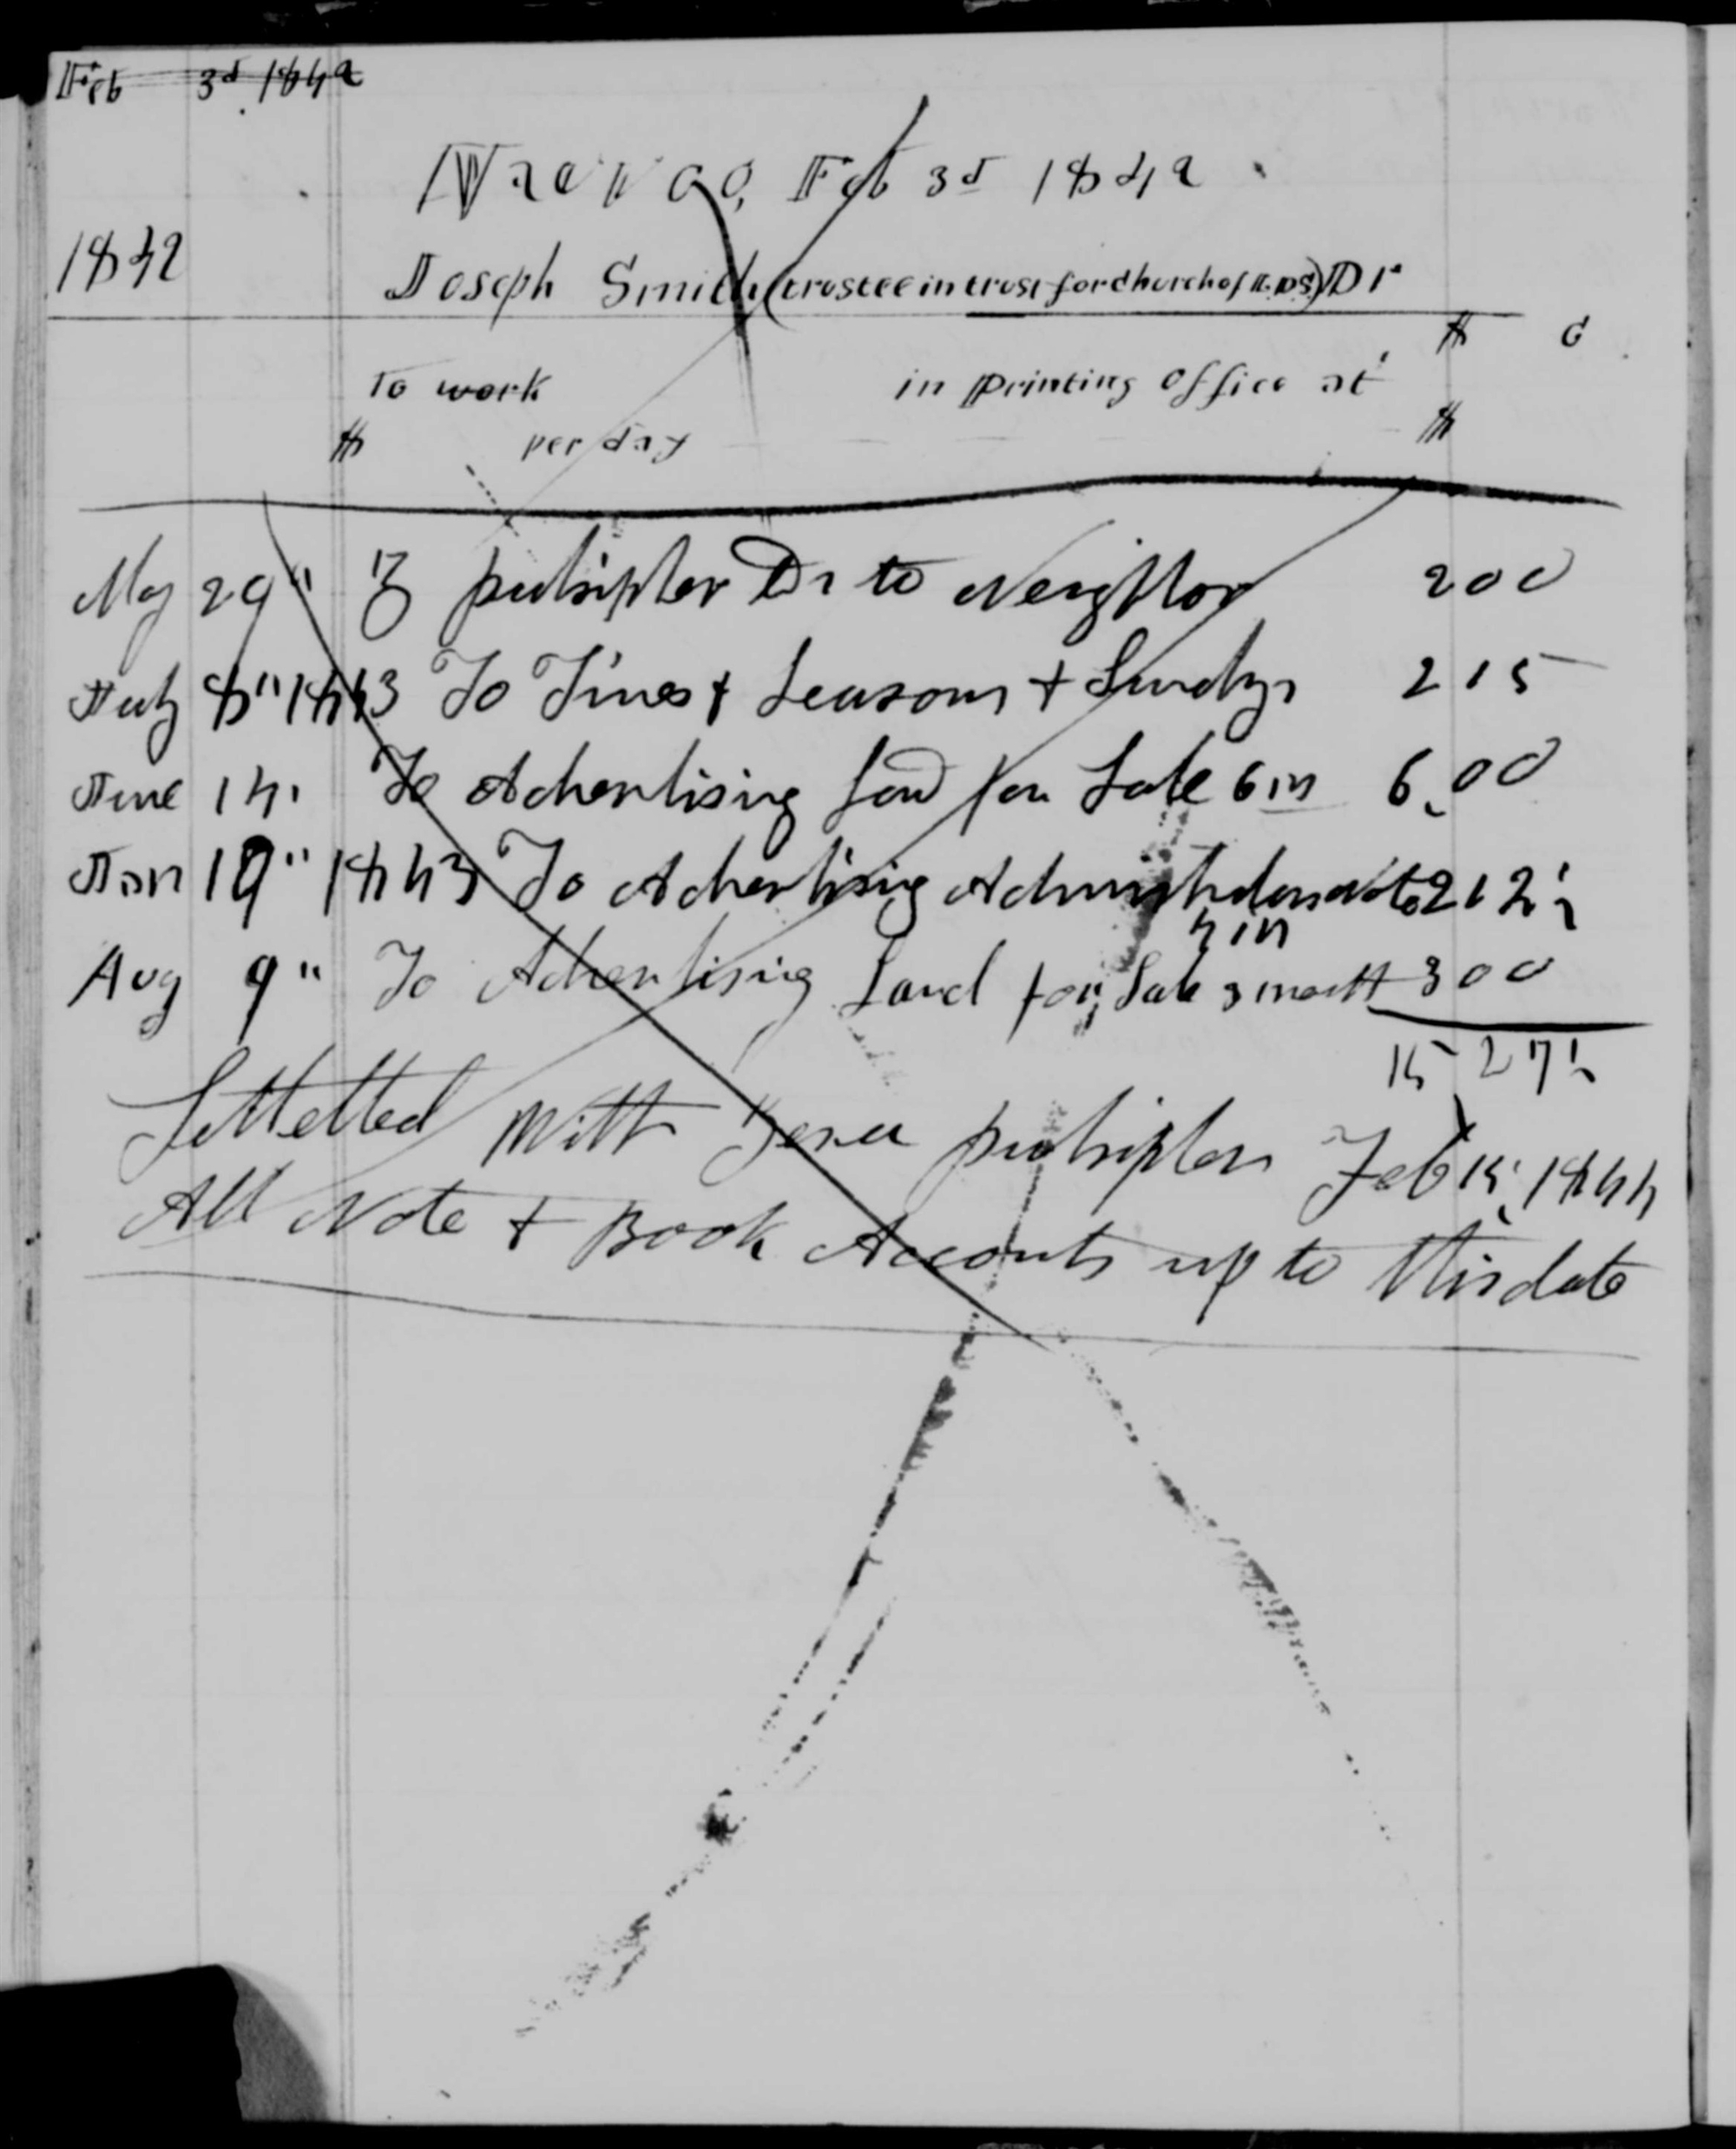 Feb 3d 1842
Nauvoo, Feb 3d 1842
1842 Joseph Smith (trustee in trust for church of L. DS) Dr
$ C
To work in printing office at
$ per day $
May 29" Z pulsipher Dr to Neighbor 200
July 8" 1843 To Times & Seasons & Sundrys 215
June 14. To Advertising for Sale 6 in 6.00
Jan 19" 1843 To Advertising Administrators Note 212½
4 in
Aug 9" To Advertising Land for Sale 3 month 300
15 27½
Settelled With Zera pulsipher Feb 15, 1844
All Note & Book Acconts up to this date